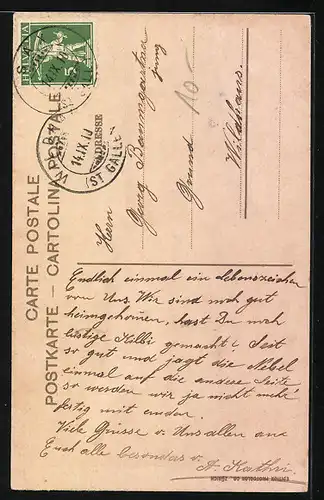 CARTE POSTALE
POSTKARTE — CARTOLINA POSTALE
HELVETIA
5
14.IX.10
(ST GALLEN)
ADRESSE
Herrn
Georg Baumgartner
jung
Grund
Wildhaus.
10.-
Endlich einmal ein Lebenszeichen
von Uns Wir sind noch gut
heimgekommen, hast Du noch
lustige Kilbi gemacht? Seit
so gut und jagt die Nebel
einmal auf die andere Seite
so werden wir ja nicht mehr
fertig mit emden.
Viele Grüsse v. Uns allen an
Euch alle besonders v.
A. Kathri